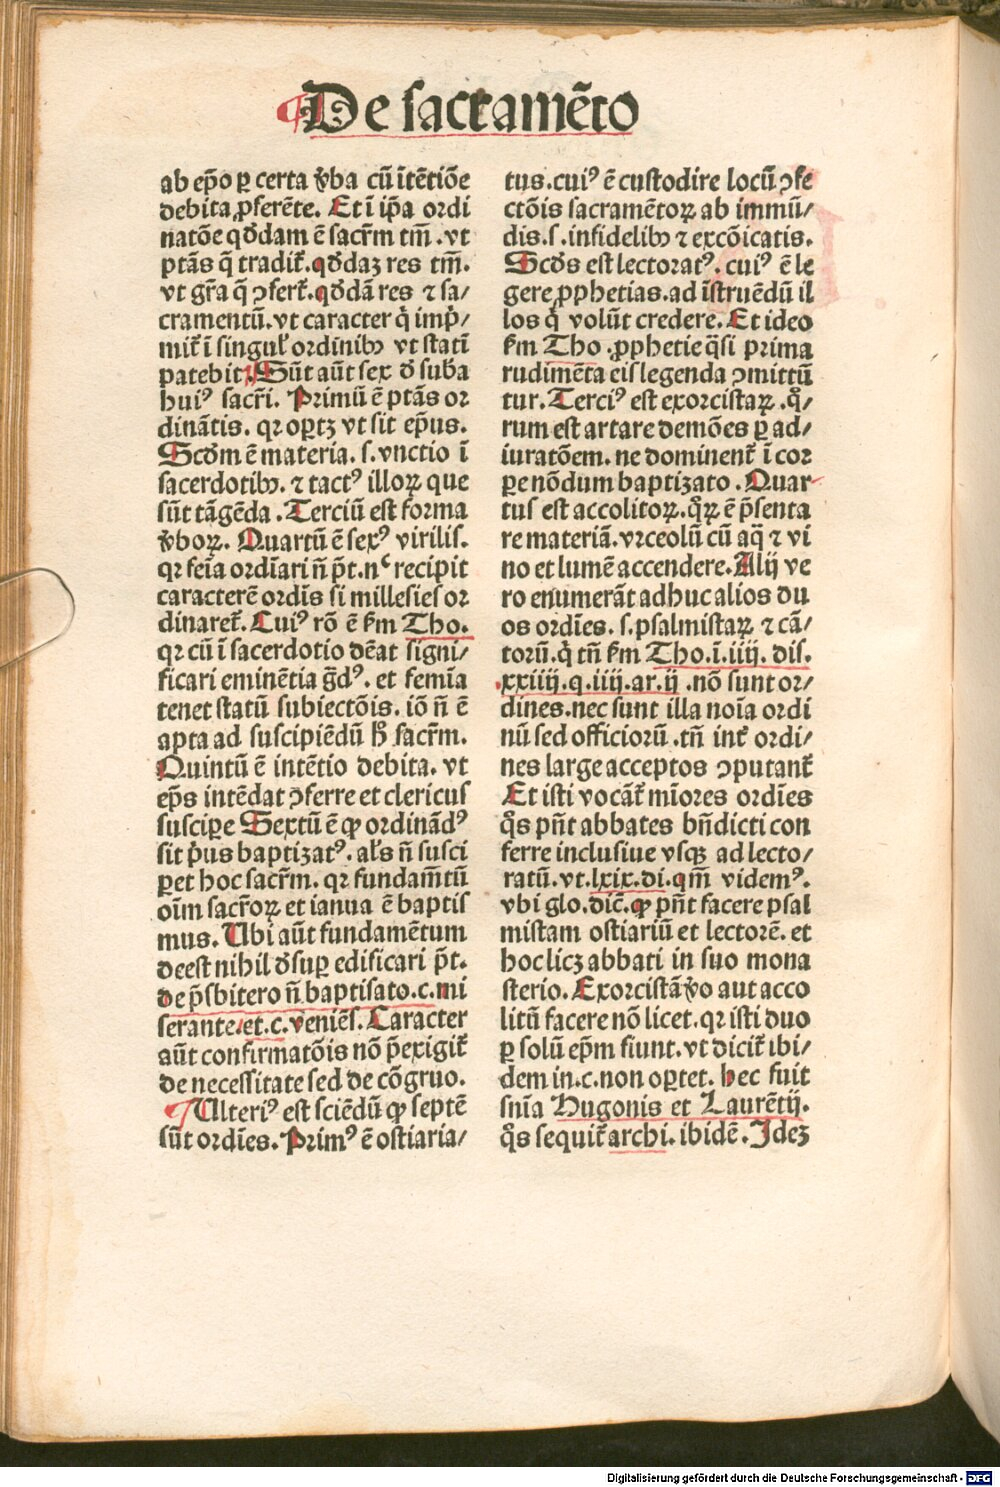 De sacramēto
ab ep̄o ꝑ certa v̄ba cū ītētiōe
debita ꝓferēte. Et ī ip̄a ordi
natōe qd̄dam ē sacr̄m tm̄. vt
ptās q̄ tradit᷑. qd̄daꝫ res tm̄.
vt gr̄a q̄ ꝯfert᷑. qd̄dā res ⁊ sa/
cramentū. vt caracter q̇ imp̄/
mit᷑ ī singul᷑ ordinibꝰ vt statī
patebit. Sūt aūt sex d̄ sub̄a
huiꝰ sacr̄i. Primū ē ptās or
dinātis. qꝛ oꝑtꝫ vt sit ep̄us.
Scd̄m ē materia. s. vnctio ī
sacerdotibꝰ. ⁊ tactꝰ illoꝝ que
sūt tāgēda. Terciū est forma
v̄boꝝ. Quartū ē sexꝰ virilis.
qꝛ feīa ordīari n̄ p̄t. nᶜ recipit
caracterē ordīs si millesies or
dinaret᷑. Cuiꝰ rō ē ẜm Tho.
qꝛ cū ī sacerdotio dēat signi/
ficari eminētia ḡdꝰ. et femīa
tenet statū subiectōis. iō n̄ ē
apta ad suscipiēdū h̄ sacr̄m.
Quintū ē intētio debita. vt
ep̄s intēdat ꝯferre et clericus
suscipere Sextū ē ꝙ ordinādꝰ
sit p̄us baptizatꝰ. al̄s n̄ susci
ꝑet hoc sacr̄m. qꝛ fundam̄tū
oīm sacr̄oꝝ et ianua ē baptis
mus. Ubi aūt fundamētum
deest nihil d̄suꝑ edificari p̄t.
de p̄sbitero n̄ baptisato. c. mi
serante. et. c. veniēs. Caracter
aūt confirmatōis nō p̄exigit᷑
de necessitate sed de cōgruo.
¶ Ulteriꝰ est sciēdū ꝙ septē
sūt ordīes. Primꝰ ē ostiaria/
tus. cuiꝰ ē custodire locū ꝯfe
ctōis sacramētoꝝ ab immū/
dis. s. infidelibꝰ ⁊ excōicatis.
Scd̄s est lectoratꝰ. cuiꝰ ē le
gere ꝓphetias. ad īstruēdū il
los q̇ volūt credere. Et ideo
ẜm Tho. ꝓphetie q̄si prima
rudimēta eis legenda ꝯmittū
tur. Terciꝰ est exorcistaꝝ. q̊/
rum est artare demōes ꝑ ad/
iuratōem. ne dominent᷑ ī cor
ꝑe nōdum baptizato. Quar
tus est accolitoꝝ. q̊ꝝ ē p̄senta
re materiā. vrceolū cū aq̄ ⁊ vi
no et lumē accendere. Alij ve
ro enumerāt adhuc alios du
os ordīes. s. psalmistaꝝ ⁊ cā/
torū. q̇ tn̄ ẜm Tho. ī. iiij. dis.
xxiiij. q. iiij. ar. ij. nō sunt or/
dines. nec sunt illa noīa ordi
nū sed officiorū. tn̄ int᷑ ordi/
nes large acceptos ꝯputant᷑
Et isti vocāt᷑ mīores ordīes
q̊s pn̄t abbates bn̄dicti con
ferre inclusiue vsqꝫ ad lecto/
ratū. vt. lxix. di. qm̄ videmꝰ.
vbi glo. dic̄. ꝙ pn̄t facere psal
mistam ostiariū et lectorē. et
hoc licꝫ abbati in suo mona
sterio. Exorcistā v̄o aut acco
litū facere nō licet. qꝛ isti duo
ꝑ solū ep̄m fiunt. vt dicit᷑ ibi/
dem in. c. non oꝑtet. hec fuit
sn̄ia Hugonis et Laurētij.
q̊s sequit᷑ archi. ibidē. Jdeꝫ
Digitalisierung gefördert durch die Deutsche Forschungsgemeinschaft - DFG